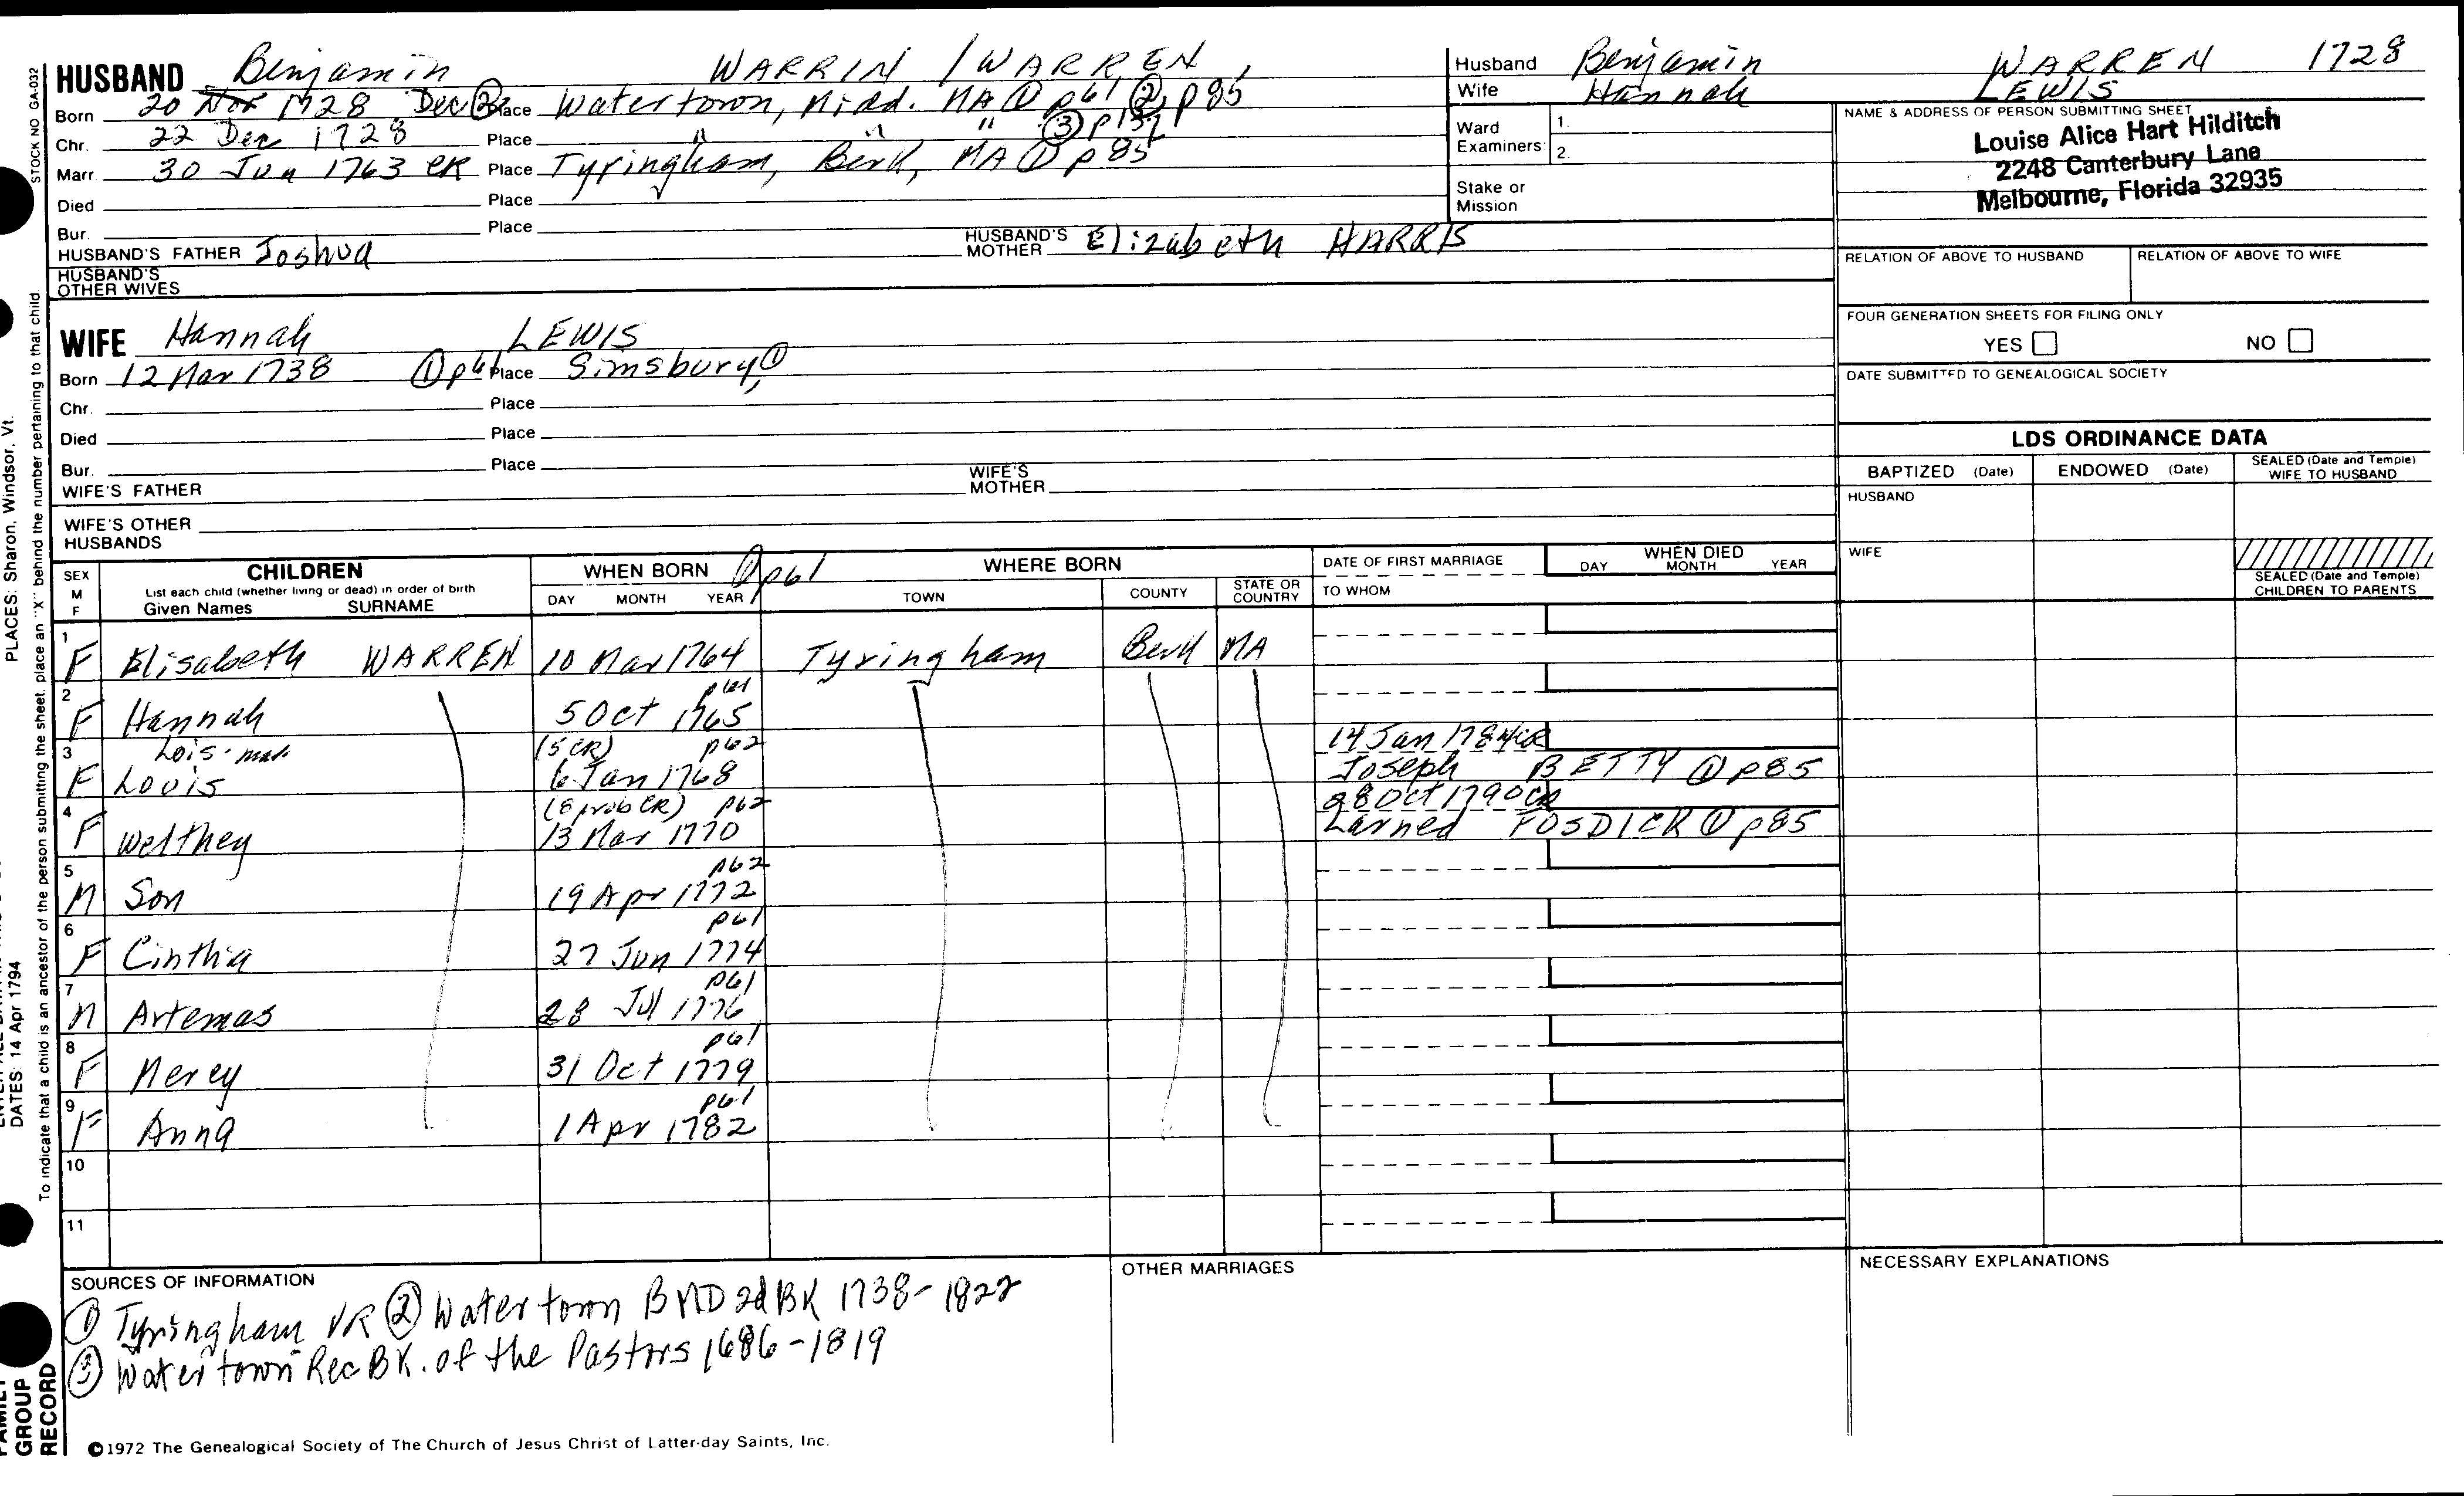 HUSBAND Benjamin WARRIN / WARREN
Born 20 Nov 1728 Dec ② Place Watertown, Midd. MA ① p61 ②, p85
Chr. 22 Dec 1728 Place " " " ③ p132
Marr. 30 Jun 1763 CR Place Tyringham, Berk, MA ① p85
Died Place
Bur. Place
HUSBAND'S FATHER Joshua HUSBAND'S MOTHER Elizabeth HARRIS
HUSBAND'S OTHER WIVES
Husband Benjamin WARREN 1728
Wife Hannah LEWIS
Ward Examiners: 1.
2.
Stake or Mission
NAME & ADDRESS OF PERSON SUBMITTING SHEET
Louise Alice Hart Hilditch
2248 Canterbury Lane
Melbourne, Florida 32935
RELATION OF ABOVE TO HUSBAND RELATION OF ABOVE TO WIFE
FOUR GENERATION SHEETS FOR FILING ONLY
YES NO
DATE SUBMITTED TO GENEALOGICAL SOCIETY
WIFE Hannah LEWIS
Born 12 Mar 1738 ① p61 Place Simsbury, ①
Chr. Place
Died Place
Bur. Place
WIFE'S FATHER WIFE'S MOTHER
WIFE'S OTHER HUSBANDS
LDS ORDINANCE DATA
BAPTIZED (Date) ENDOWED (Date) SEALED (Date and Temple) WIFE TO HUSBAND
HUSBAND
WIFE
SEALED (Date and Temple) CHILDREN TO PARENTS
SEX M F
CHILDREN
List each child (whether living or dead) in order of birth
Given Names SURNAME
WHEN BORN ① p61
DAY MONTH YEAR
WHERE BORN
TOWN COUNTY STATE OR COUNTRY
DATE OF FIRST MARRIAGE
TO WHOM
WHEN DIED
DAY MONTH YEAR
1 F Elisabeth WARREN 10 Mar 1764 Tyringham Berk MA
2 F Hannah p61 5 Oct 1765
3 F Lois - Louis (5 CR) p62 6 Jan 1768 14 Jan 1784 CR Joseph BETTY ① p85
4 F Welthey (8 prob CR) p62 13 Mar 1770 28 Oct 1790 CR Larned FOSDICK ① p85
5 M Son p62 19 Apr 1772
6 F Cinthia p61 27 Jun 1774
7 M Artemas p61 28 Jul 1776
8 F Mercy p61 31 Oct 1779
9 F Anna p61 1 Apr 1782
10
11
SOURCES OF INFORMATION
① Tyringham VR ② Watertown BMD 2d BK 1738-1822
③ Watertown Rec BK. of the Pastors 1686-1819
OTHER MARRIAGES
NECESSARY EXPLANATIONS
©1972 The Genealogical Society of The Church of Jesus Christ of Latter-day Saints, Inc.
STOCK NO GA-032
To indicate that a child is an ancestor of the person submitting the sheet, place an "X" behind the number pertaining to that child.
PLACES: Sharon, Windsor, Vt.
DATES: 14 Apr 1794
FAMILY GROUP RECORD